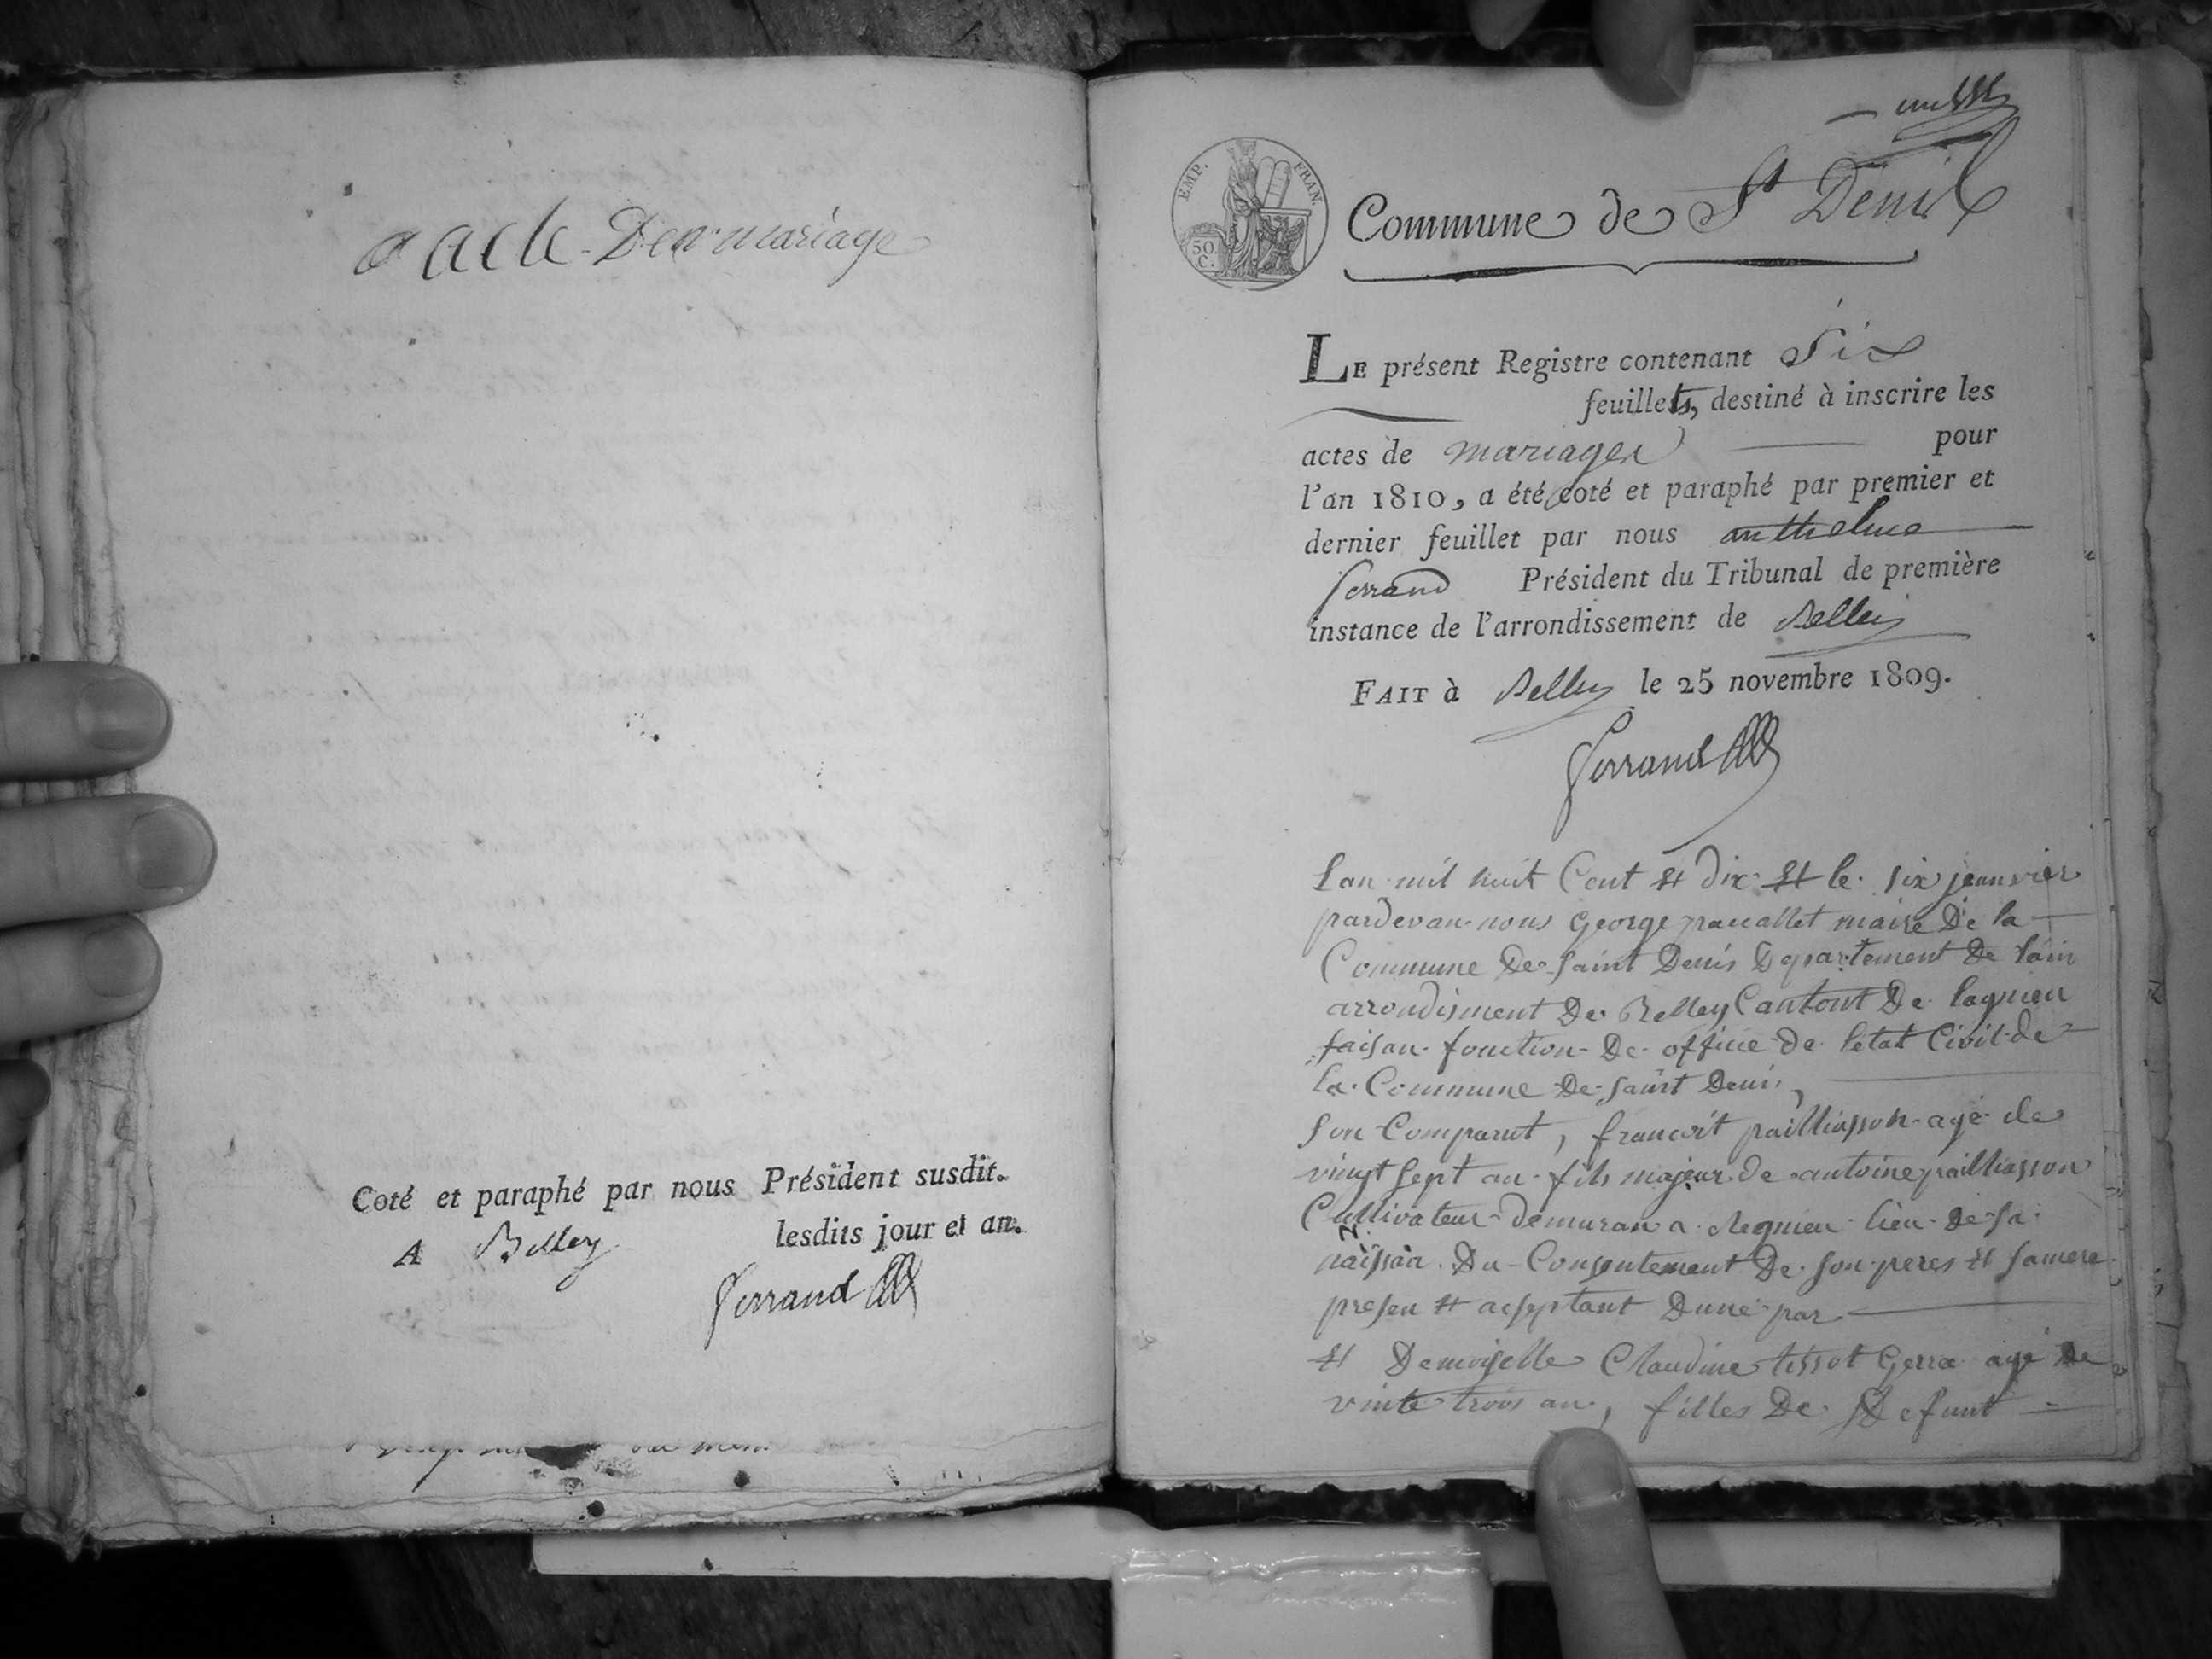 acte Des mariage
Coté et paraphé par nous Président susdit.
A Belley lesdits jour et an.
Ferrand
EMP. FRAN.
50 C.
Commune de St Denis
LE présent Registre contenant Six
feuillets, destiné à inscrire les
actes de mariages pour
l'an 1810, a été coté et paraphé par premier et
dernier feuillet par nous anthelme
ferrand Président du Tribunal de première
instance de l'arrondissement de Belley
FAIT à Belley le 25 novembre 1809.
Ferrand
Lan mil huit Cent et dix et le six jeanvier
pardevan nous George paucallet maire De la
Commune De Saint Denis Departement De lain
arrondisment De Belley Cantont De lagnieu
faisan fonction De office de letat Civil de
la Commune De Saint Denis,
Son Comparut, francoit pailliasson agé de
vingt sept an fils majeur de antoine pailliasson
Cultivateur demuran a lieu de sa
naissan Du Consentement De son peres et sa mere
presen et acseptant Dune par
et Demoiselle Claudine tissot Gerra agé De
vinte trois an, filles De Defunt